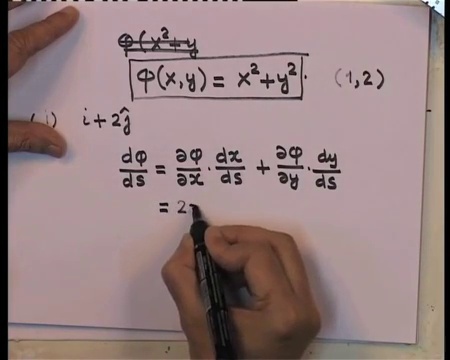 φ(x²+y
φ(x,y) = x²+y². (1,2)
i) i + 2ĵ
dφ/ds = ∂φ/∂x · dx/ds + ∂φ/∂y · dy/ds
= 2